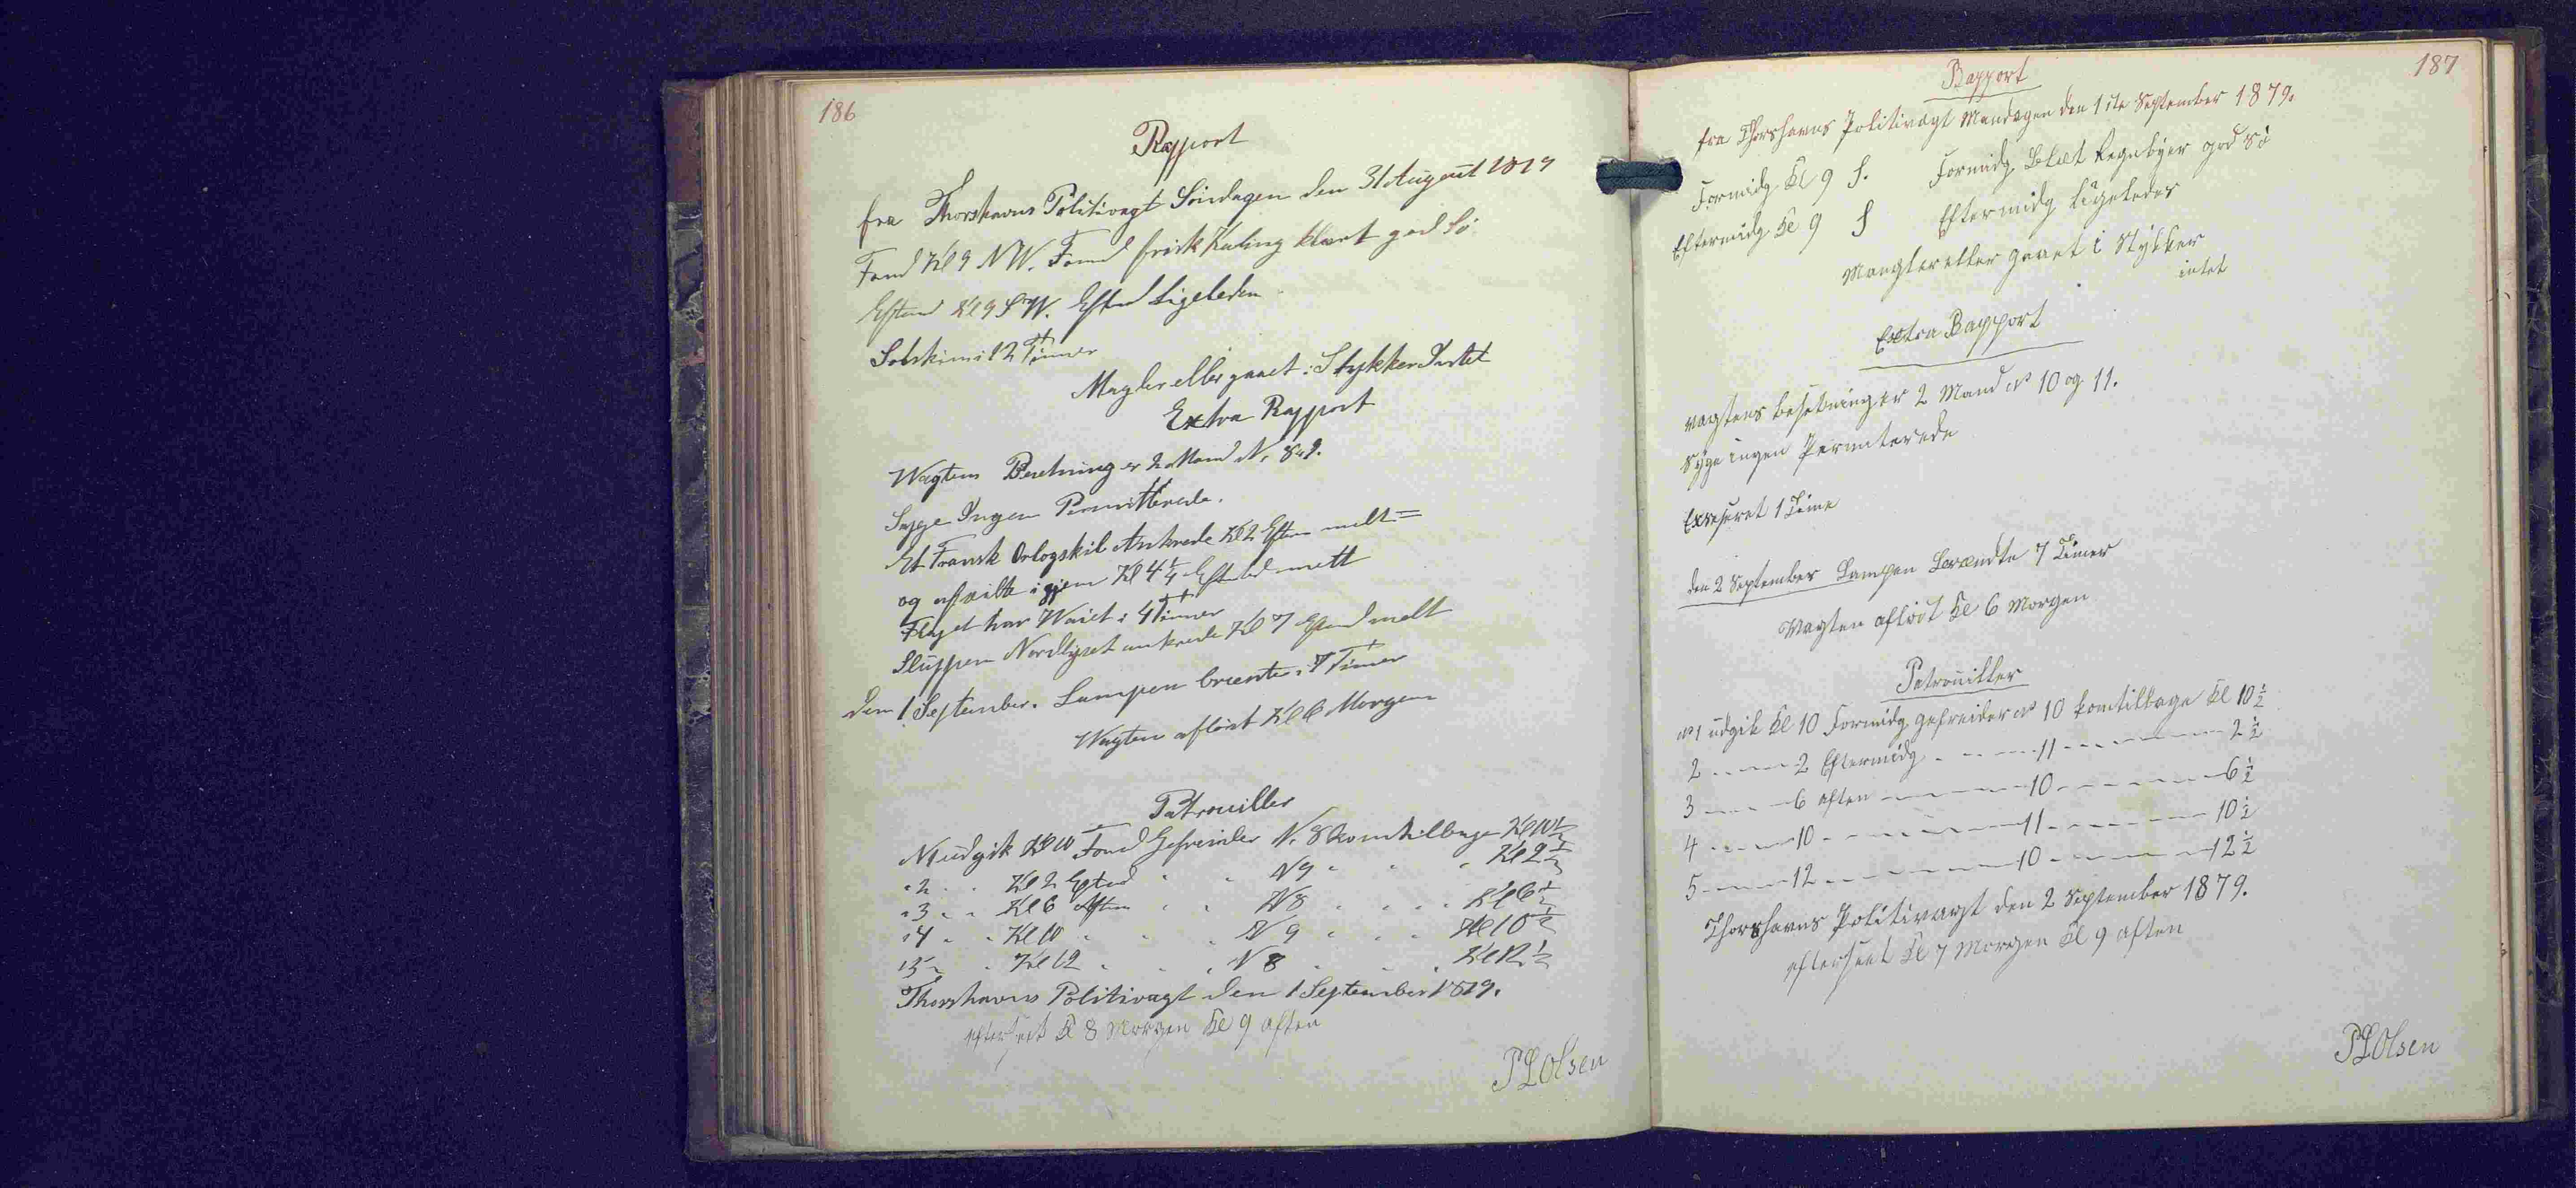 186
Rapport
fra Thorshavns Politivagt Söndagen den 31 August 1879
Formd Kl 9 NW. Formd frisk Kuling klart god Sö
Eftmd Kl 9 S W. Eftmd Ligeleden
Solskin i 12 Timer
Magler eller gaaet i Stykker Intet
Extra Rapport
Wagtens Besetning er 2 Mand N. 8 & 9.
Syge Ingen Permitterede.
Et Fransk Orlogskib Ankrede Kl 2 Eftm melt =
og afseilte igjen Kl 4 1/4 Eftmd melt
Flaget har Waiet i 4 Timer
Sluppen Nordlyset ankrede Kl 7 Eftmd melt
den 1 September. Lampen brænte i 7 Timer
Wagten aflöst Kl 6 Morgen
Patrouiller
N 1 udgik Kl 10 Formd Gefreider N. 8 kom tilbage Kl 10 1/2
" 2 " " Kl 2 Eftmd " " N 9 " " " Kl 2 1/2
" 3 " " Kl 6 Aften " " N 8 " " " Kl 6 1/2
" 4 " " Kl 10 " " " N 9 " " " Kl 10 1/2
" 5 " " Kl 12 " " " N 8 " " " Kl 12 1/2
Thorshavns Politivagt den 1 September 1879.
efterseet Kl 8 Morgen Kl 9 aften
P L Olsen
187
Rapport
fra Thorshavns Politivagt Mandagen den 1ste September 1879.
Formidg Kl 9 S. Formidg Blæt Regnbyer god Sö
Eftermidg Kl 9 S Eftermidg Ligeledes
Mangler eller gaaet i Stykker
intet
Extra Rapport
Vagtens besetning er 2 Mand No 10 og 11.
Syge ingen Permiterede
Exseseret 1 Time
den 2 September Lampen Brændte 7 Timer
Vagten aflöst Kl 6 Morgen
Patrouiller
No 1 udgik Kl 10 Formidg gefreider No 10 kom tilbage Kl 10 1/2
2 - - - - 2 Eftermidg - - - - 11 - - - - - - 2 1/2
3 - - - - 6 aften - - - - - 10 - - - - - - 6 1/2
4 - - - - 10 - - - - - - - 11 - - - - - - 10 1/2
5 - - - - 12 - - - - - - - 10 - - - - - - 12 1/2
Thorshavns Politivagt den 2 September 1879.
efterseet Kl 7 Morgen Kl 9 aften
P L Olsen